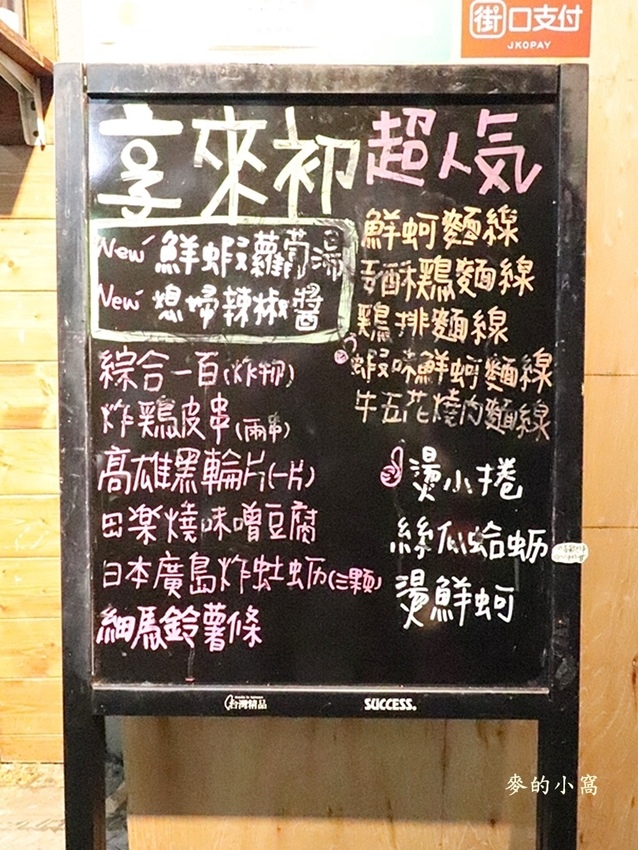 街口支付
JKOPAY
享來初
New 鮮蝦蘿蔔湯
New 媳婦辣椒醬
綜合一百(炸物)
炸鶏皮串(兩串)
高雄黑輪片(一片)
田楽燒味噌豆腐
日本廣島炸牡蛎(三顆)
細馬鈴薯條
超人気
鮮蚵麵線
麥酥鶏麵線
鶏排麵線
蝦味鮮蚵麵線
牛五花燒肉麵線
燙小捲
絲瓜蛤蛎
燙鮮蚵
made in taiwan
台灣精品
SUCCESS.
麥的小窩